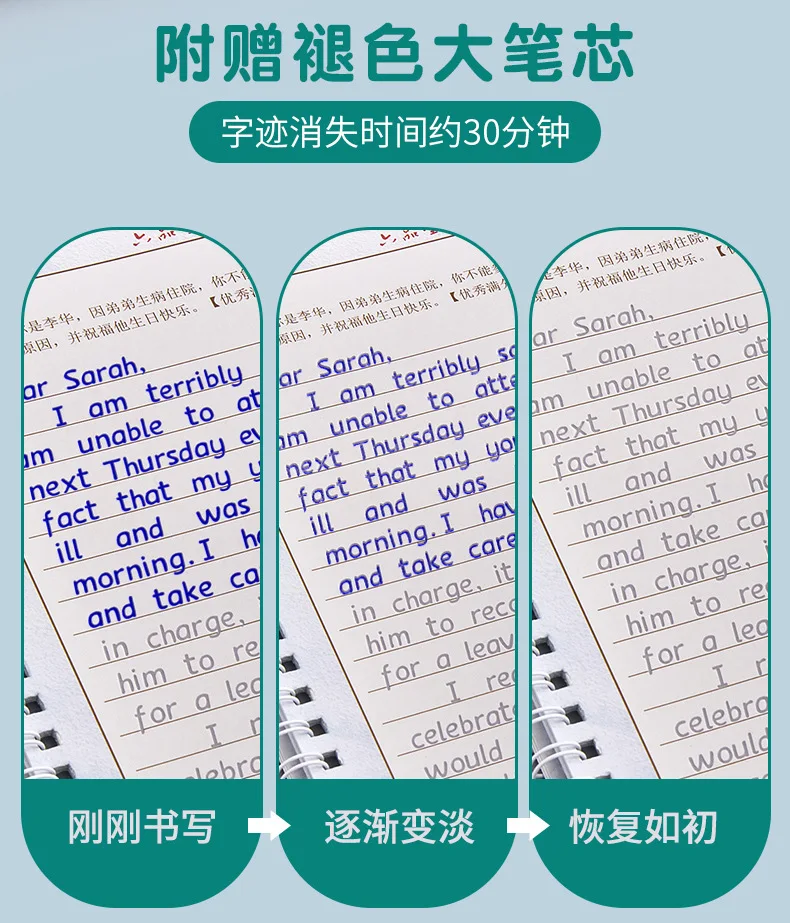 附赠褪色大笔芯
字迹消失时间约30分钟
是李华，因弟弟生病住院，你不
原因，并祝福他生日快乐。【优秀满
ar Sarah,
I am terribly
am unable to at
next Thursday ev
fact that my y
ill and was
morning. I ha
and take ca
in charge,
him to re
for a lea
I r
celebra
刚刚书写
是李华，因弟弟生病住院，你不能
原因，并祝福他生日快乐。【优秀满
ar Sarah,
I am terribly so
am unable to atte
next Thursday eve
fact that my you
ill and was
morning. I hav
and take care
in charge, it
him to reco
for a leav
I rec
celebrat
would
逐渐变淡
是李华，因弟弟生病住院，
原因，并祝福他生日快乐。【
ar Sarah,
I am terribly
am unable to at
next Thursday ev
fact that my y
ill and was
morning. I ha
and take ca
in charge, i
him to re
for a lea
I r
celebra
would
恢复如初